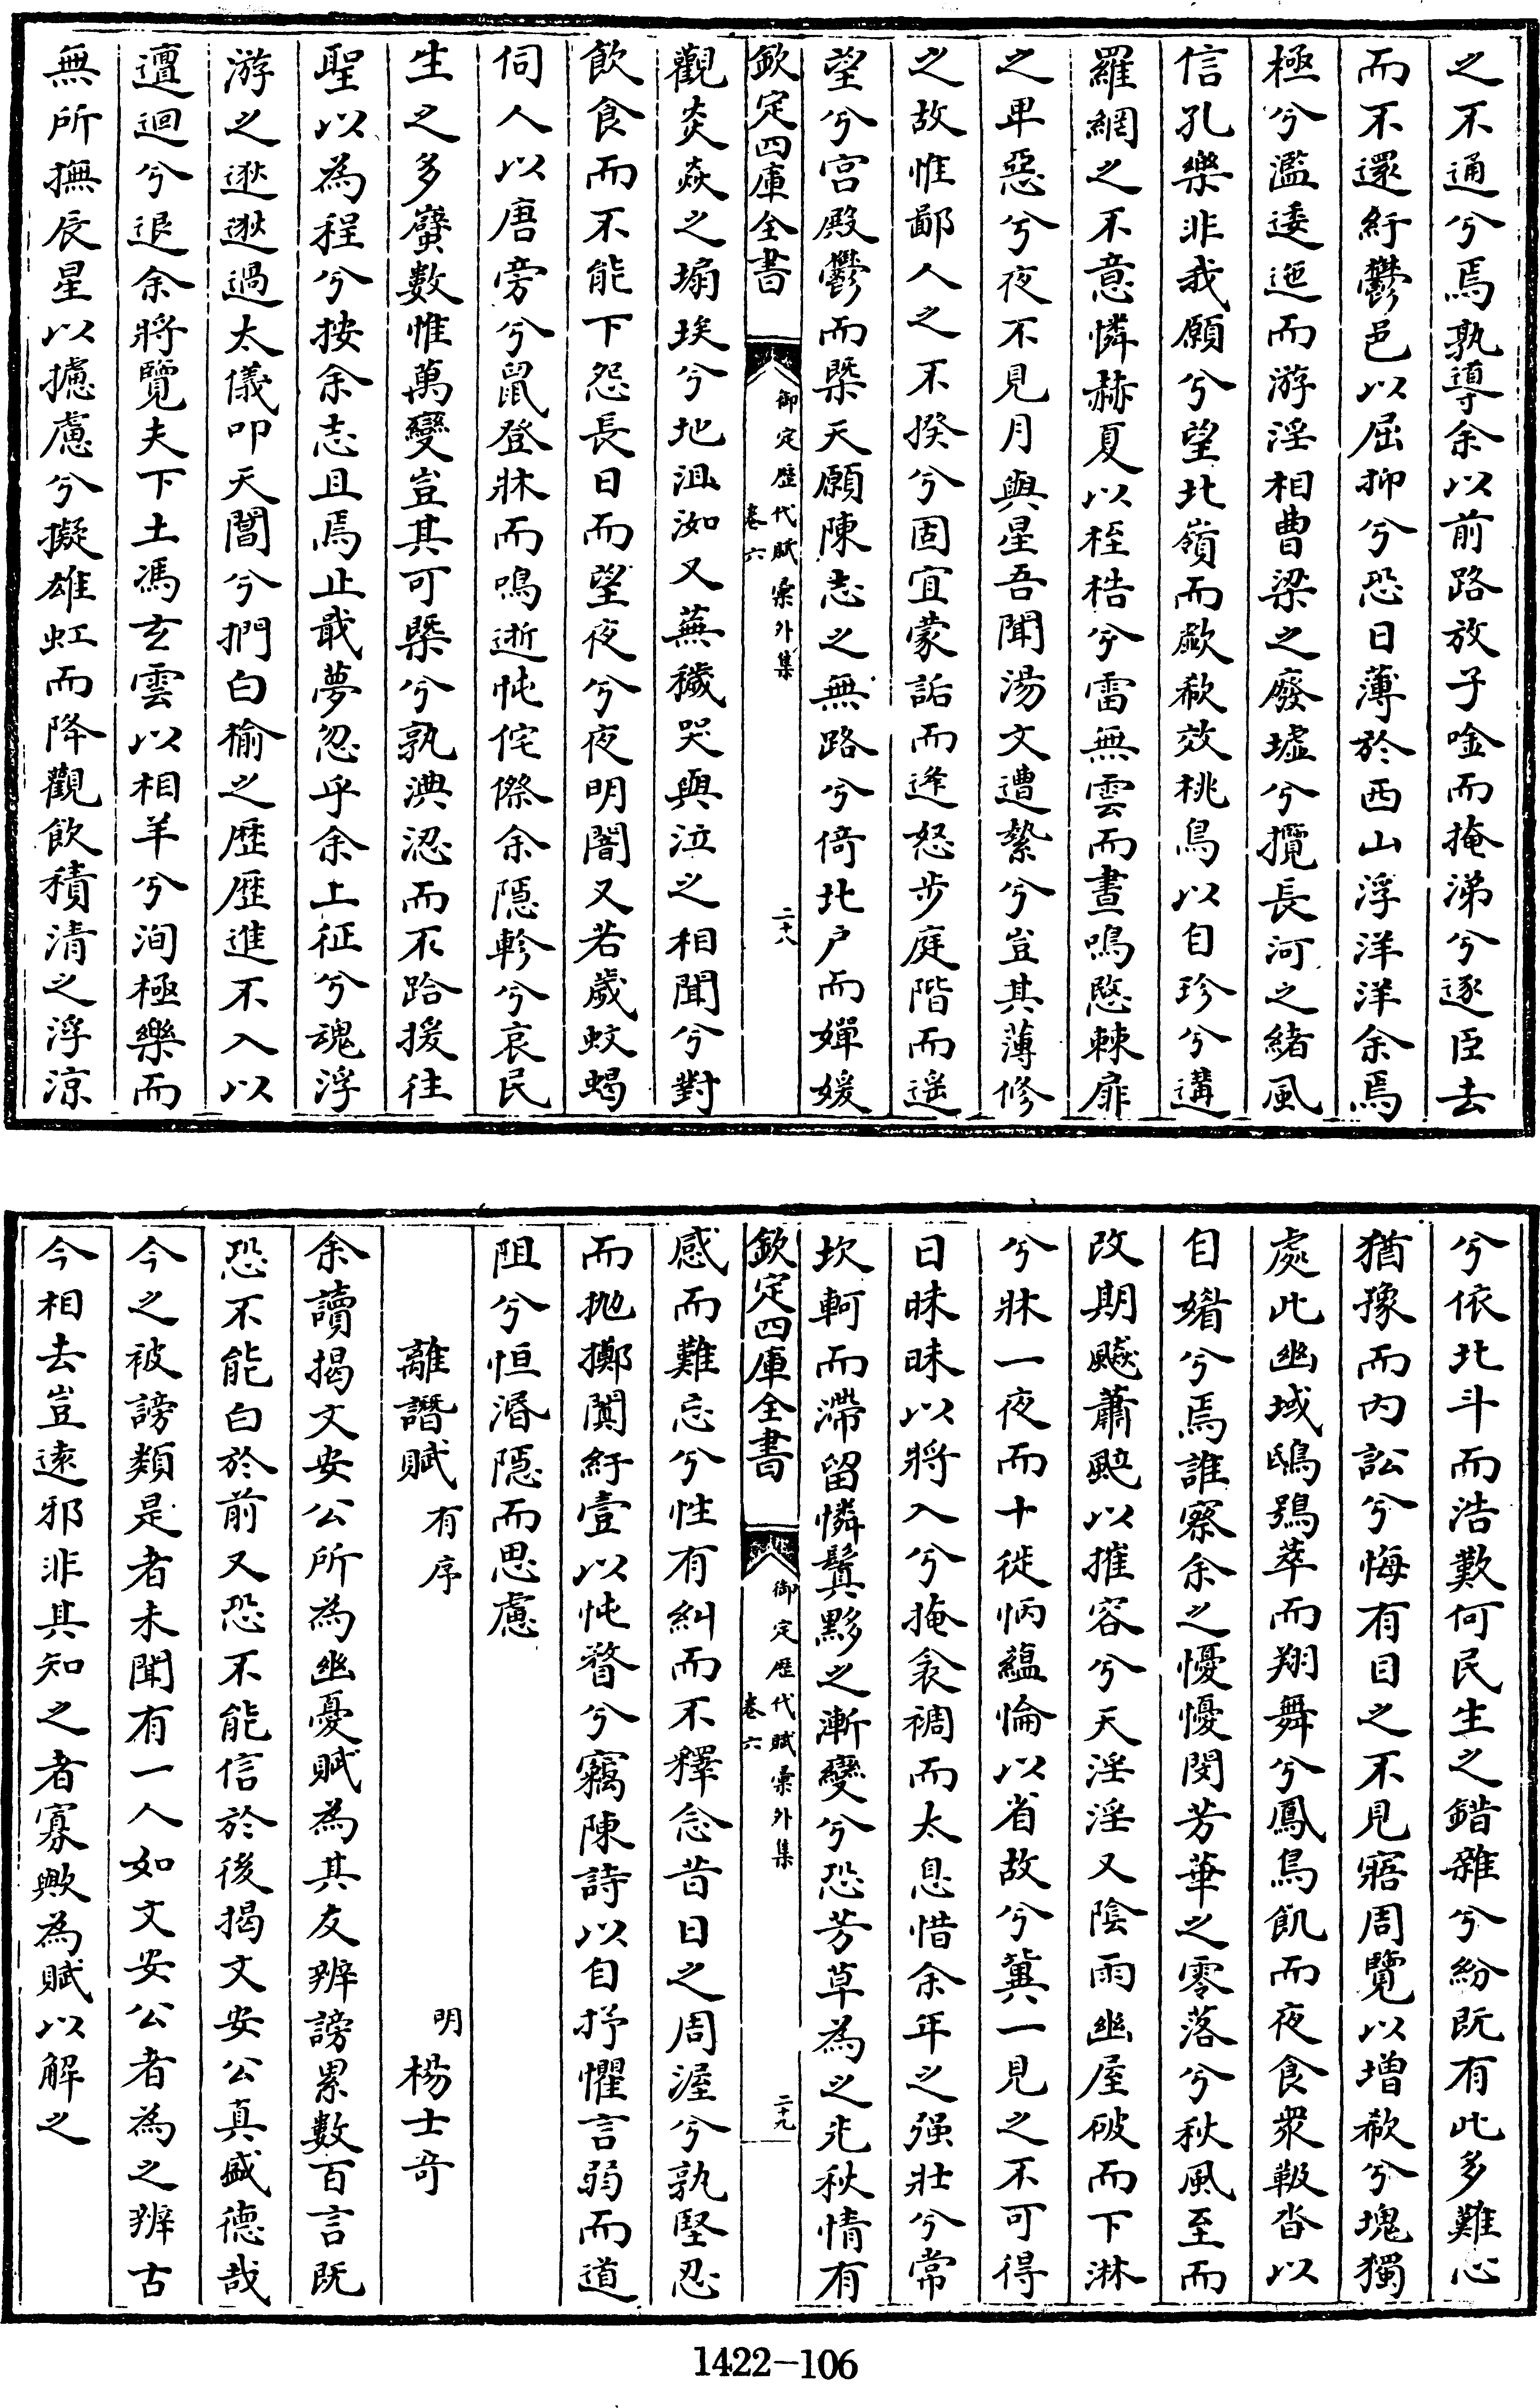 之不通兮焉孰導余以前路放子唫而掩涕兮逐臣去
而不還紆鬱邑以屈抑兮恐日薄於西山浮洋洋余焉
極兮濫逶迤而游淫相曹梁之廢墟兮攬長河之緒風
信孔樂非我願兮望北嶺而歔欷效桃鳥以自珍兮遘
羅網之不意憐赫夏以桎梏兮雷無雲而晝鳴愍棘扉
之卑惡兮夜不見月與星吾聞湯文遭縶兮豈其薄修
之故惟鄙人之不揆兮固宜蒙詬而逢怒步庭階而遥
望兮宫殿鬱而槩天願陳志之無路兮倚北户而嬋媛
欽定四庫全書
御定歴代賦彙外集
卷六
二十八
觀炎焱之塌埃兮地沮洳又蕪穢哭與泣之相聞兮對
飲食而不能下怨長日而望夜兮夜明闇又若歲蚊蝎
伺人以唐旁兮鼠登牀而鳴逝忳侘傺余隱軫兮哀民
生之多蠥數惟萬變豈其可槩兮孰淟涊而不跲援往
聖以為程兮按余志且焉止戢夢忽乎余上征兮魂浮
游之逖逖過太儀叩天閶兮捫白榆之歴歴進不入以
邅迴兮退余將覽夫下土馮玄雲以相羊兮洵極樂而
無所撫辰星以攄慮兮擬雄虹而降觀飲積清之浮涼
兮依北斗而浩歎何民生之錯雜兮紛既有此多難心
猶豫而内訟兮悔有目之不見寤周覽以增欷兮塊獨
處此幽域鴟鴞萃而翔舞兮鳳鳥飢而夜食衆𩎟沓以
自媢兮焉誰察余之懮懮閔芳華之零落兮秋風至而
改期飈蕭颸以摧容兮天淫淫又陰雨幽屋破而下淋
兮牀一夜而十徙怲藴惀以省故兮冀一見之不可得
日昧昧以將入兮掩衾裯而太息惜余年之强壯兮常
坎軻而滯留憐鬒黟之漸變兮恐芳草為之先秋情有
欽定四庫全書
御定歴代賦彙外集
卷六
二十九
感而難忘兮性有糾而不釋念昔日之周渥兮孰堅忍
而抛擲闃紆壹以忳瞀兮竊陳詩以自抒懼言弱而道
阻兮恒湣隱而思慮
離譖賦 有序
明 楊士奇
余讀揭文安公所為幽憂賦為其友辨謗累數百言既
恐不能白於前又恐不能信於後揭文安公真盛德哉
今之被謗類是者未聞有一人如文安公者為之辨古
今相去豈遠邪非其知之者寡歟為賦以解之
1422-106